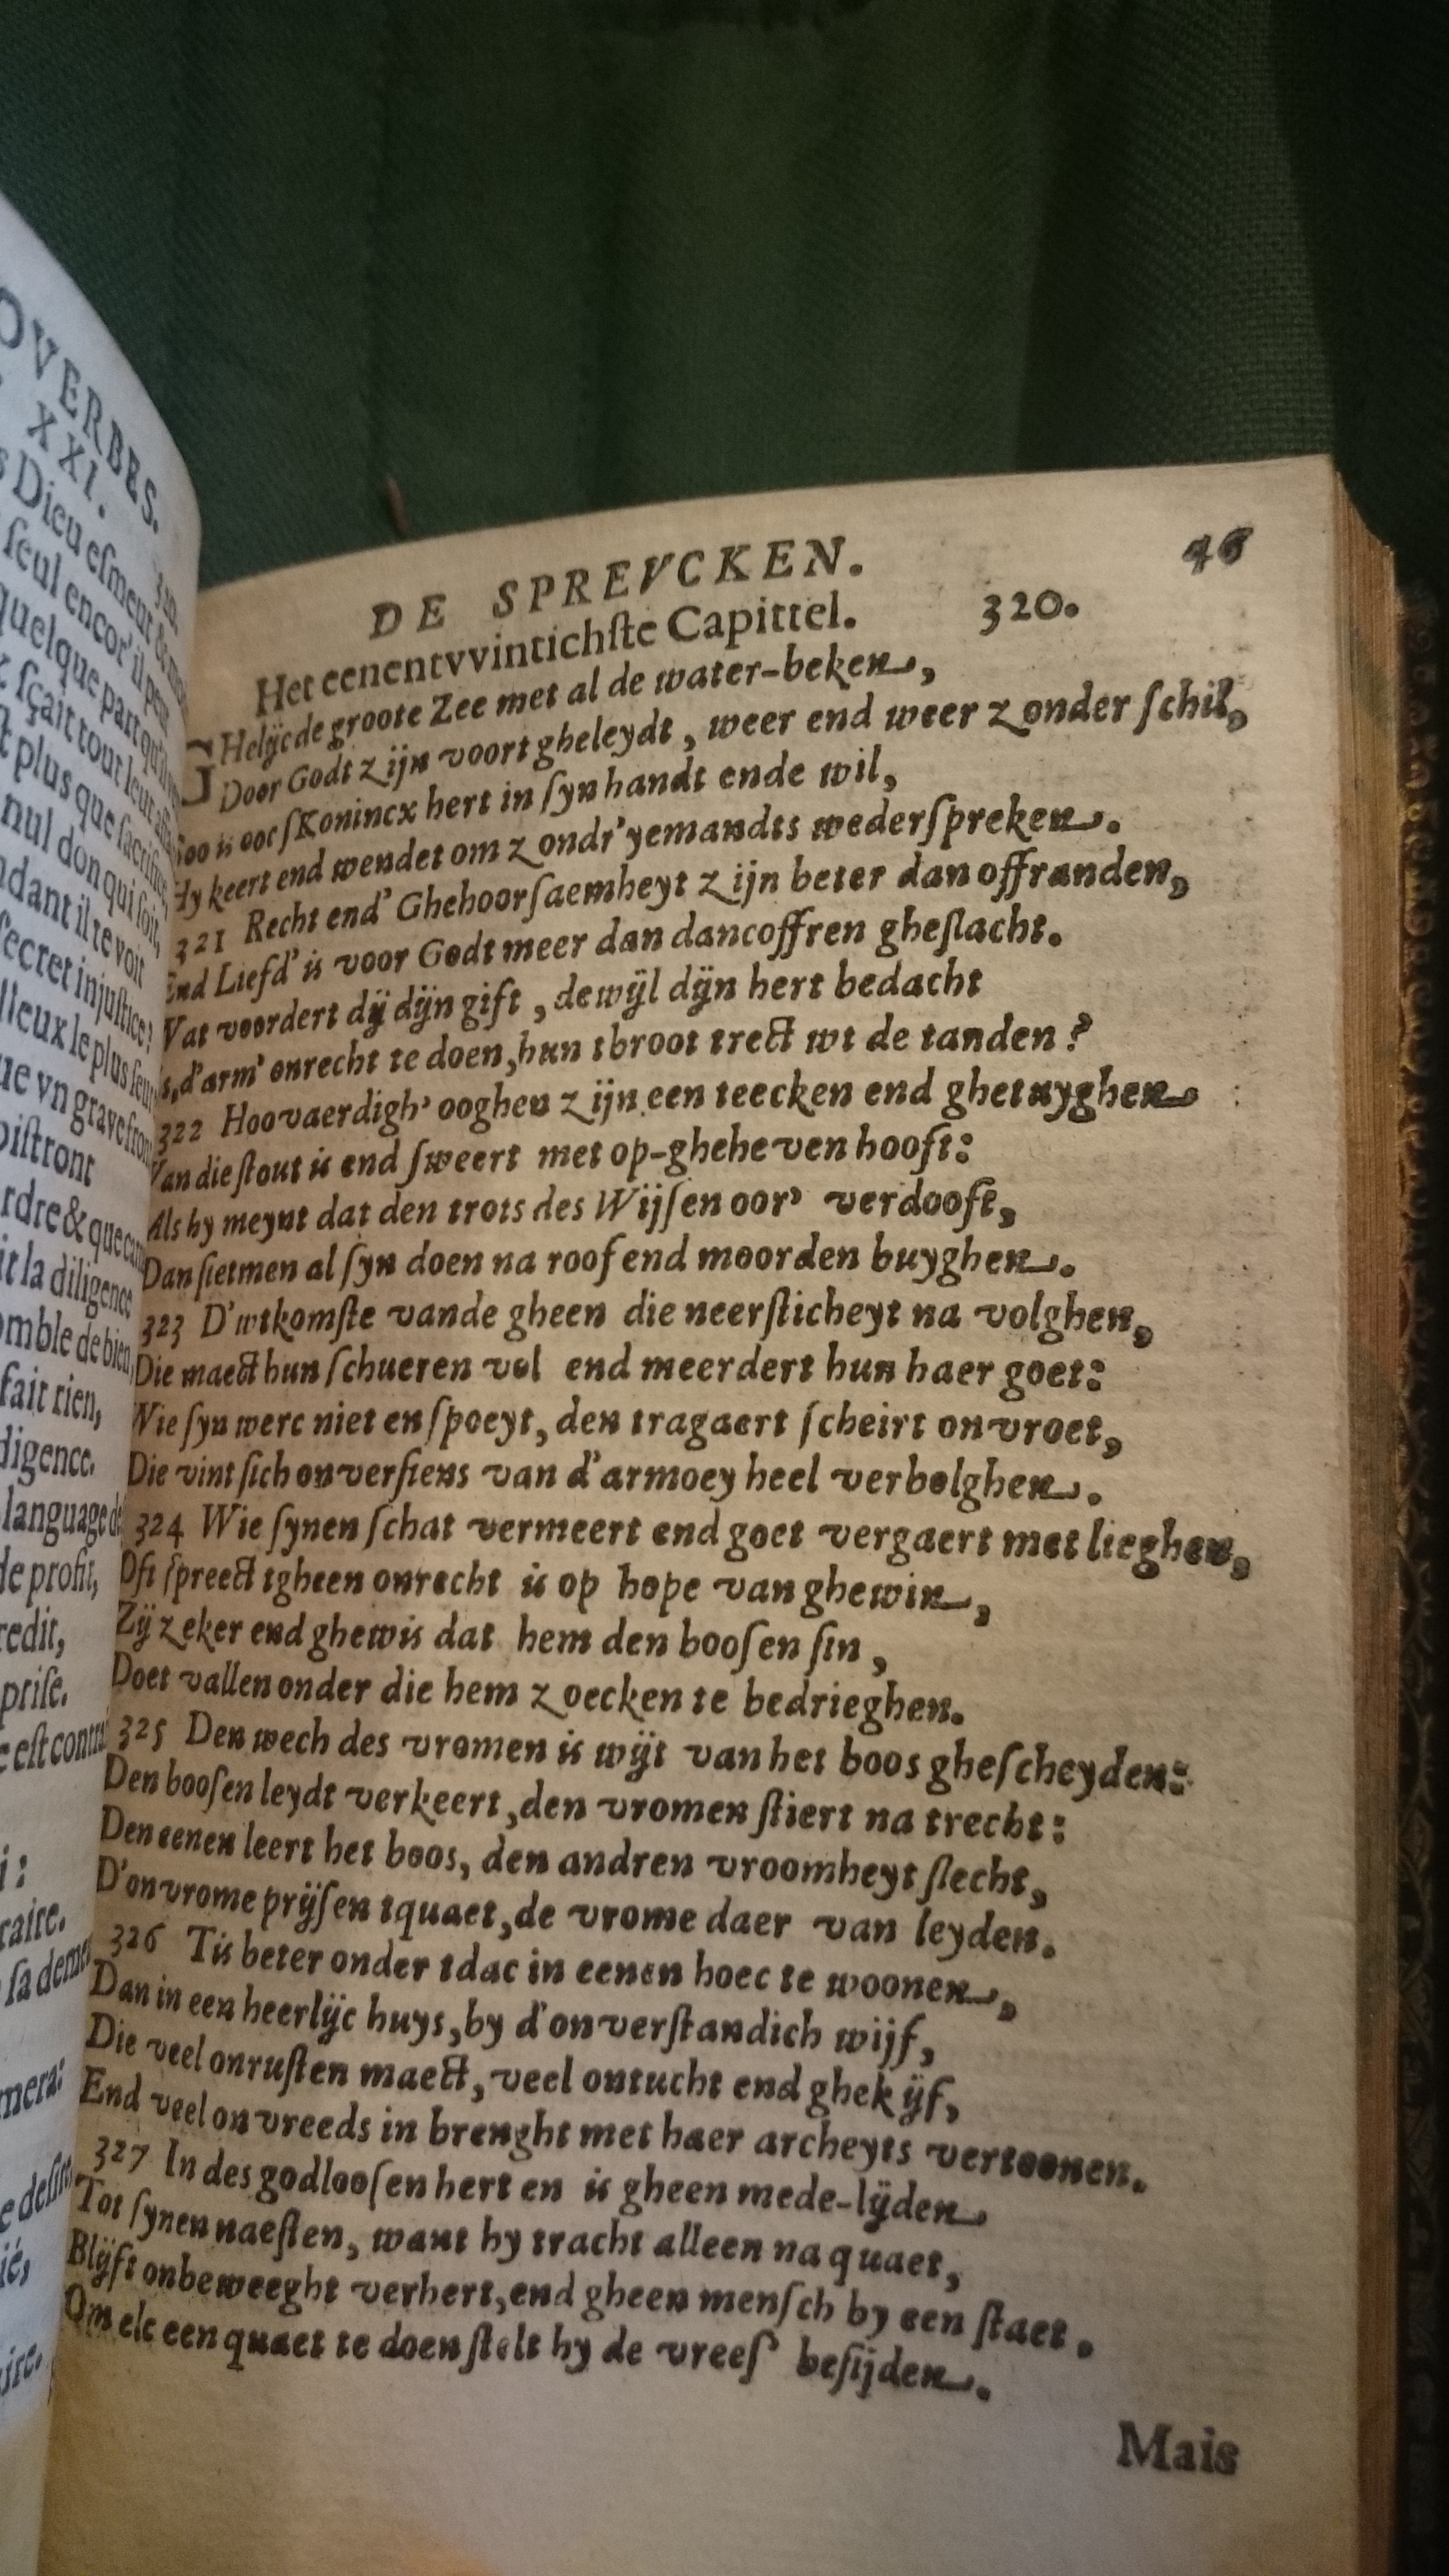 OVERBES.
XXI.
s Dieu esmeut
seul encor' il peut
quelque part qu'il
sçait tout leur
plus que sacrifice
nul don qui soit,
ndant il te voit
secret injustice!
lleux le plus
ue vn grave front
oistront
rdre & que
it la diligence
omble de bien
fait rien,
digence.
language de
de profit,
redit,
prise.
e est contra
i:
raire.
sa deme
mera:
e desire
ié,
ire.
DE SPREVCKEN. 46
Het eenentvvintichſte Capittel. 320.
Helijc de groote Zee met al de water-beken,
Door Godt zijn voort gheleydt, weer end weer zonder ſchil,
Soo is ooc ſKonincx hert in ſyn handt ende wil,
Hy keert end wendet om zondr' yemandts wederſpreken.
321 Recht end' Ghehoorſaemheyt zijn beter dan offranden,
End Liefd' is voor Godt meer dan dancoffren gheſlacht.
Wat voordert dij dijn gift, dewijl dijn hert bedacht
Is, d'arm' onrecht te doen, hun tbroot trect wt de tanden?
322 Hoovaerdigh' ooghen zijn een teecken end ghetuyghen
Van die ſtout is end ſweert met op-gheheven hooft:
Als hy meynt dat den trots des Wijſen oor' verdooft,
Dan ſietmen al ſyn doen na roof end moorden buyghen.
323 D'wtkomſte vande gheen die neerſticheyt na volghen,
Die maect hun ſchueren vol end meerdert hun haer goet:
Wie ſyn werc niet en ſpoeyt, den tragaert ſcheirt onvroet,
Die vint ſich onverſiens van d'armoey heel verbolghen.
324 Wie ſynen ſchat vermeert end goet vergaert met lieghen,
Oft ſpreect tgheen onrecht is op hope van ghewin,
Zij zeker end ghewis dat hem den booſen ſin,
Doet vallen onder die hem zoecken te bedrieghen.
325 Den wech des vromen is wijt van het boos gheſcheyden:
Den booſen leydt verkeert, den vromen ſtiert na trecht:
Den eenen leert het boos, den andren vroomheyt ſlecht,
D'onvrome prijſen tquaet, de vrome daer van leyden.
326 Tis beter onder tdac in eenen hoec te woonen,
Dan in een heerlijc huys, by d'onverſtandich wijf,
Die veel onruſten maect, veel ontucht end ghekijf,
End veel onvreeds in brenght met haer archeyts vertoonen.
327 In des godlooſen hert en is gheen mede-lijden
Tot ſynen naeſten, want hy tracht alleen na quaet,
Blijft onbeweeght verhert, end gheen menſch by een ſtaet.
Om elc een quaet te doen ſtelt hy de vreeſ' beſijden.
Mais